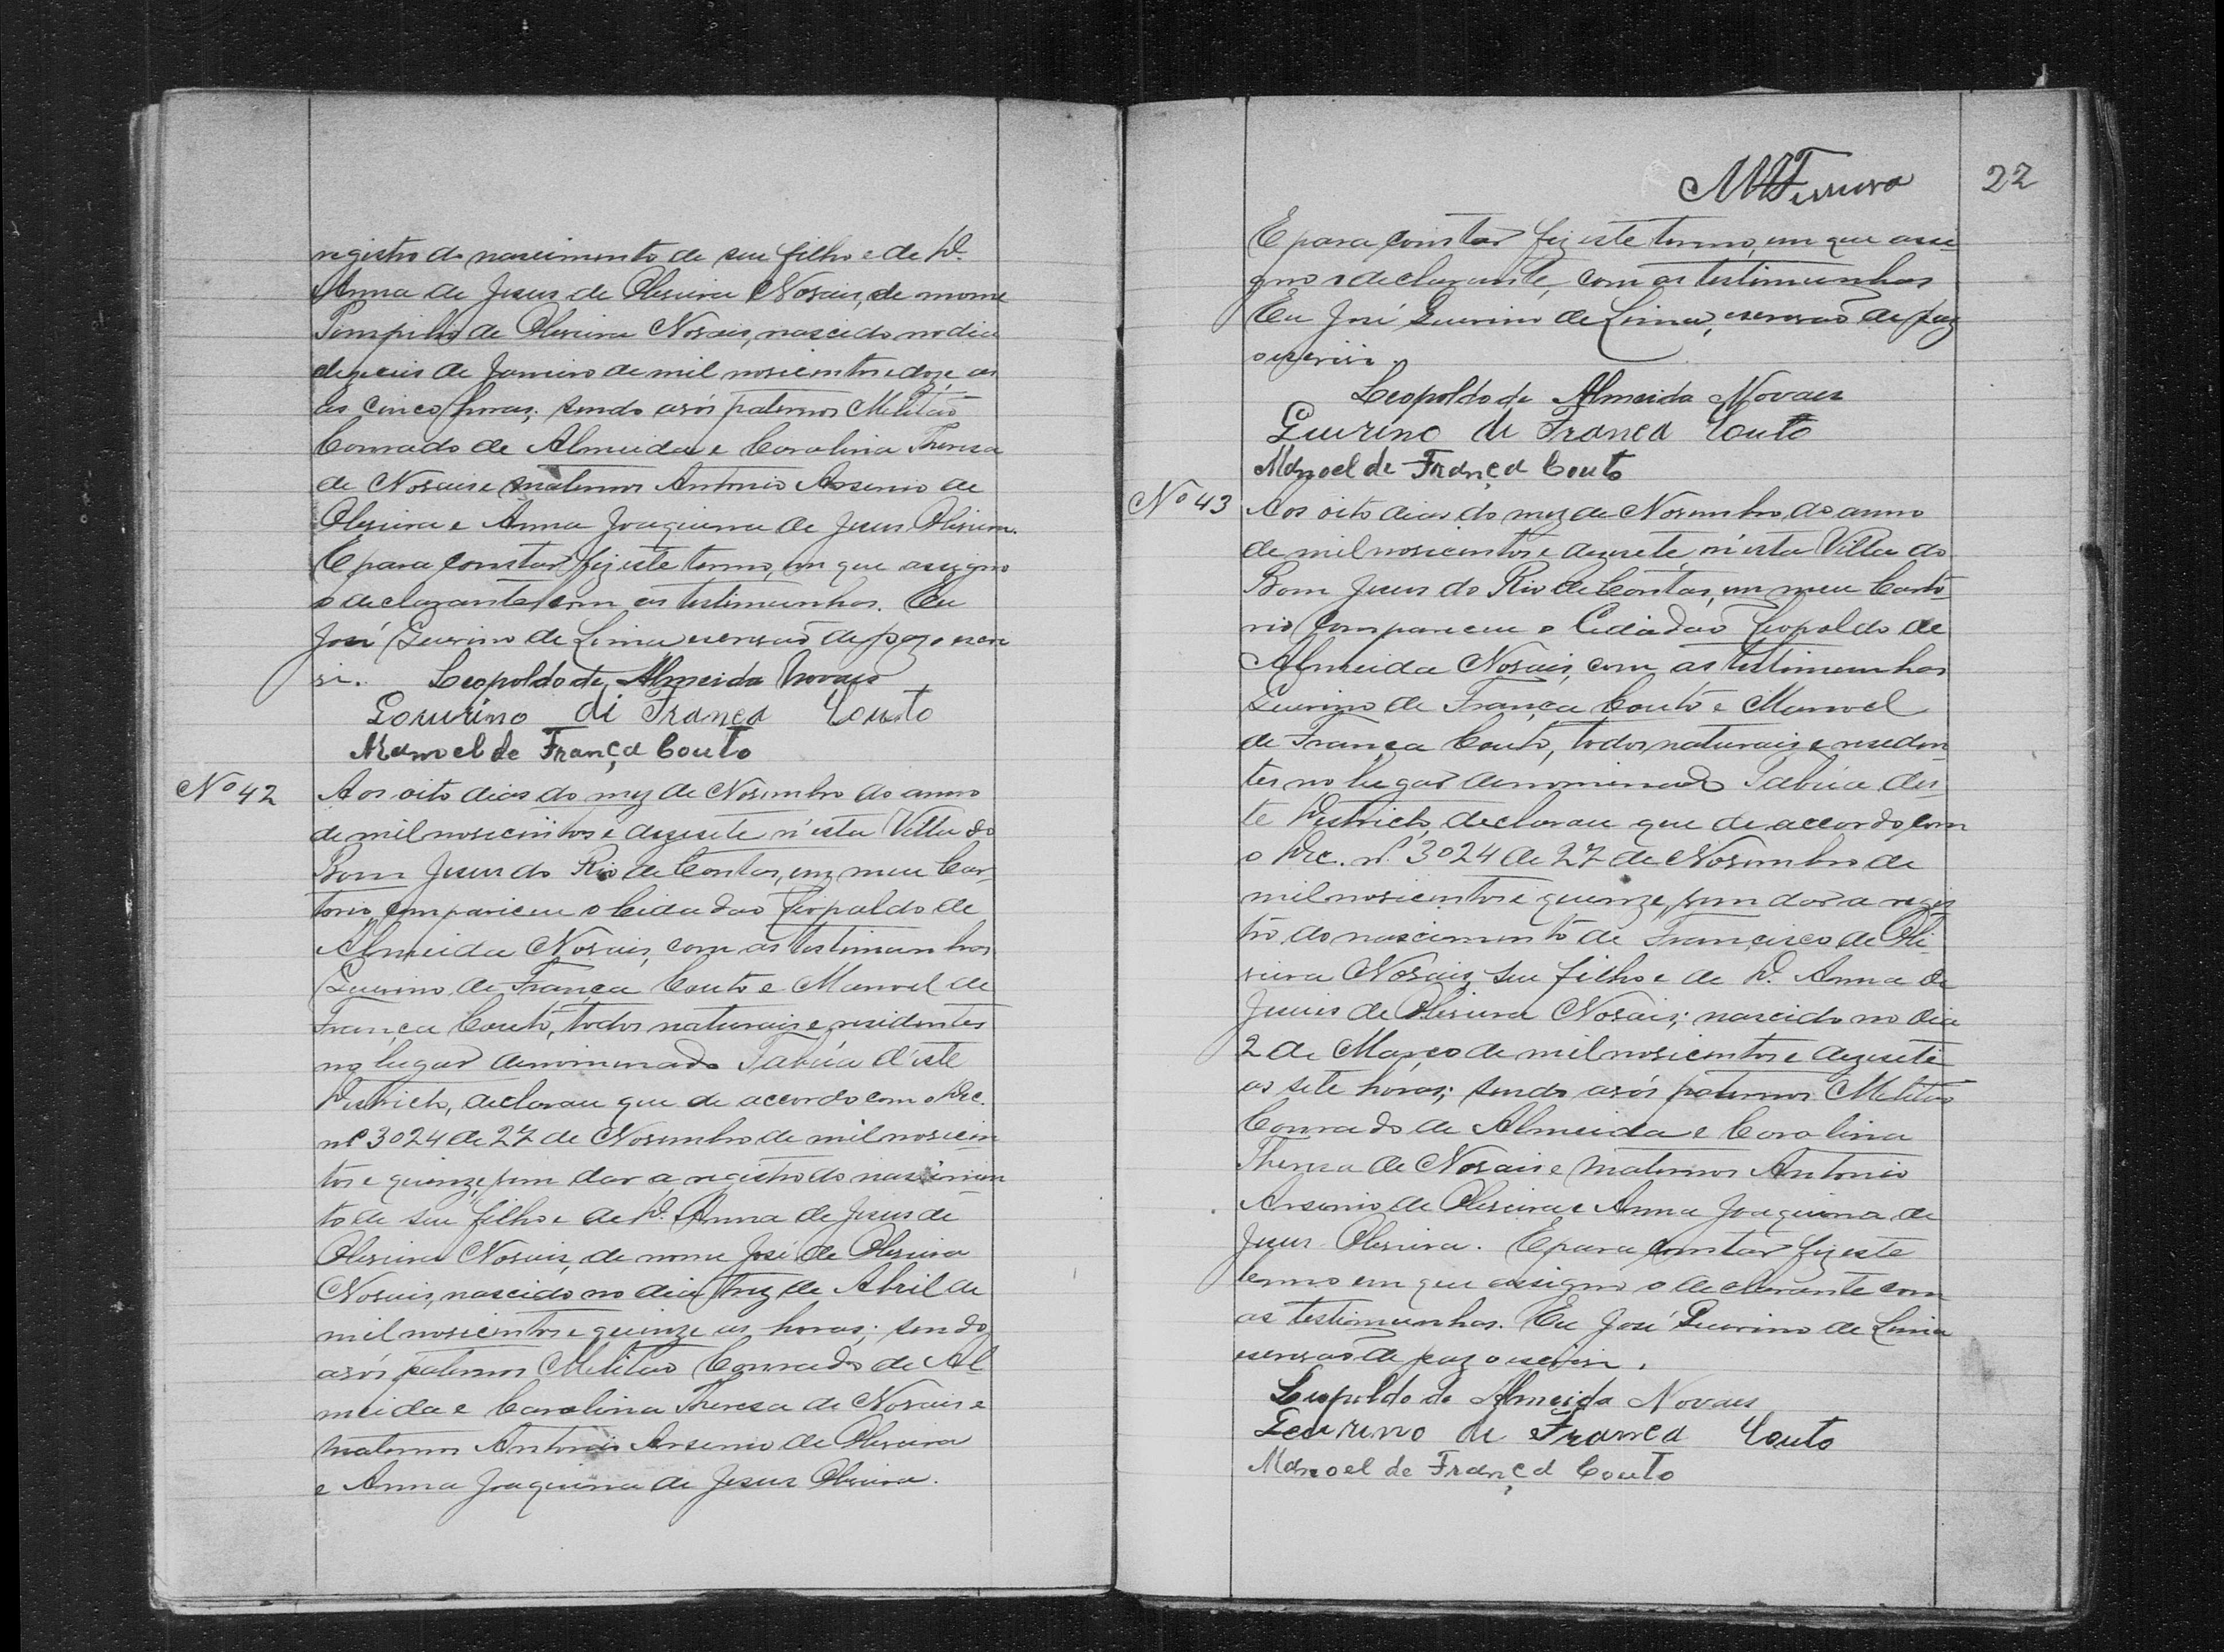 registro do nascimento de seu filho e de D.
Anna de Jesus de Oliveira Novais, de nome
Pompilio de Oliveira Novais, nascido no dia
dezeseis de Janeiro de mil novicentos e doze as
as cinco horas; sendo avós paternos Militão
Conrado de Almeida e Carolina Thereza
de Novais e maternos Antonio Arsenio de
Oliveira e Anna Joaquina de Jesus Oliveira.
E para constar fiz este termo, em que assigno
o declarante com as testimunhas. Eu
José Guirino de Lima escrivão de paz o escre
vi. Leopoldo de Almeida Novais
Gourino di França Couto
Manoel de França Couto
Nº 42
Aos oito dias do mez de Novembro do anno
de mil novicentos e dezesete n'esta Villa do
Bom Jesus do Rio de Contas, em meu Car-
torio compariceu o Cidadão Leopoldo de
Almeida Novais, com as testimunhas
Guirino de França Couto e Manoel de
França Couto, todos naturais e residentes
no lugar denominado Tabúa d'este
Districto, declarou que de accordo com o Dec.
nº 3024 de 27 de Novembro de mil novicen
tos e quinze, vem dar a registro do nascimen
to de seu filho e de D. Anna de Jesus de
Oliveira Novais, de nome José de Oliveira
Novais, nascido no dia trez de Abril de
mil novicentos e quinze as horas; sendo
avós paternos Militão Conrado de Al
meida e Carolina Thereza de Novais e
maternos Antonio Arsenio de Oliveira
e Anna Joaquina de Jesus Oliveira.
22
E para constar fiz este termo, em que assi
gno o declarante, com as testimunhas
Eu José Guirino de Lima, escrivão de paz
o escrivi.
Leopoldo de Almeida Novaes
Guirino di França Couto
Manoel de França Couto
Nº 43
Aos oito dias do mez de Novembro do anno
de mil novicentos e dezesete, n'esta Villa do
Bom Jesus do Rio de Contas, em meu Carto
rio compareceu o Cidadão Leopoldo de
Almeida Novais, com as testimunhas
Guirino de França Couto e Manoel
de França Couto, todos naturais e residen
tes no lugar denominado Tabúa des
te Districto, declarou que de accordo com
o Dec. nº 3024 de 27 de Novembro de
mil novicentos e quinze, vem dar a regis
tro do nascimento de Francisco de Oli-
veira Novais, seu filho e de D. Anna de
Jesuis de Oliveira Novais; nascido no dia
2 de Março de mil novicentos e dezesete
as sete horas; sendo avós paternos Militão
Conrado de Almeida e Carolina
Thereza de Novais e maternos Antonio
Arsenio de Oliveira e Anna Joaquina de
Jesus Oliveira. E para constar fiz este
termo em que assigno o declarante com
as testimunhas. Eu José Guirino de Lima
escrivão de paz o escrivi.
Leopoldo de Almeida Novaes
Gourino di França Couto
Manoel de França Couto